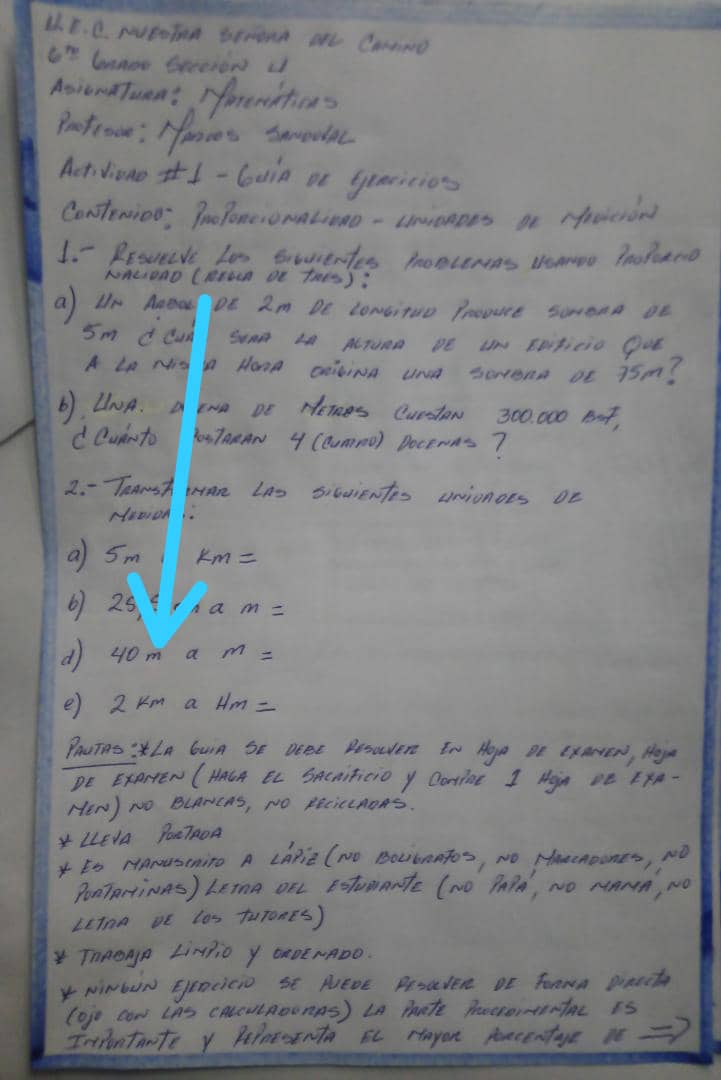 U.E.C. NUESTRA SEÑORA DEL CAMINO
6to GRADO SECCIÓN U
ASIGNATURA: MATEMÁTICAS
PROFESOR: MARCOS SANDOVAL
ACTIVIDAD #1 - GUÍA DE EJERCICIOS
CONTENIDO: PROPORCIONALIDAD - UNIDADES DE MEDICIÓN
1.- RESUELVE LOS SIGUIENTES PROBLEMAS USANDO PROPORCIO
NALIDAD (REGLA DE TRES):
a) UN ARBOL DE 2m DE LONGITUD PRODUCE SOMBRA DE
5m ¿ CUÁL SERÁ LA ALTURA DE UN EDIFICIO QUE
A LA MISMA HORA ORIGINA UNA SOMBRA DE 75m?
b) UNA DOCENA DE METRAS CUESTAN 300.000 BSF,
¿ CUÁNTO COSTARAN 4 (CUATRO) DOCENAS ?
2.- TRANSFORMAR LAS SIGUIENTES UNIDADES DE
MEDIDA:
a) 5m Km =
b) 25, a m =
d) 40 m a m =
e) 2 Km a Hm =
PAUTAS: * LA GUIA SE DEBE RESOLVER EN HOJA DE EXAMEN, HOJA
DE EXAMEN (HAGA EL SACRIFICIO Y COMPRE 1 HOJA DE EXA-
MEN) NO BLANCAS, NO RECICLADAS.
* LLEVA PORTADA
* ES MANUSCRITO A LÁPIZ (NO BOLIGRAFOS, NO MARCADORES, NO
PORTAMINAS) LETRA DEL ESTUDIANTE (NO PAPÁ, NO MAMÁ, NO
LETRA DE LOS TUTORES)
* TRABAJA LIMPIO Y ORDENADO.
* NINGÚN EJERCICIO SE PUEDE RESOLVER DE FORMA DIRECTA
(OJO CON LAS CALCULADORAS) LA PARTE PROCEDIMENTAL ES
IMPORTANTE Y REPRESENTA EL MAYOR PORCENTAJE DE =>